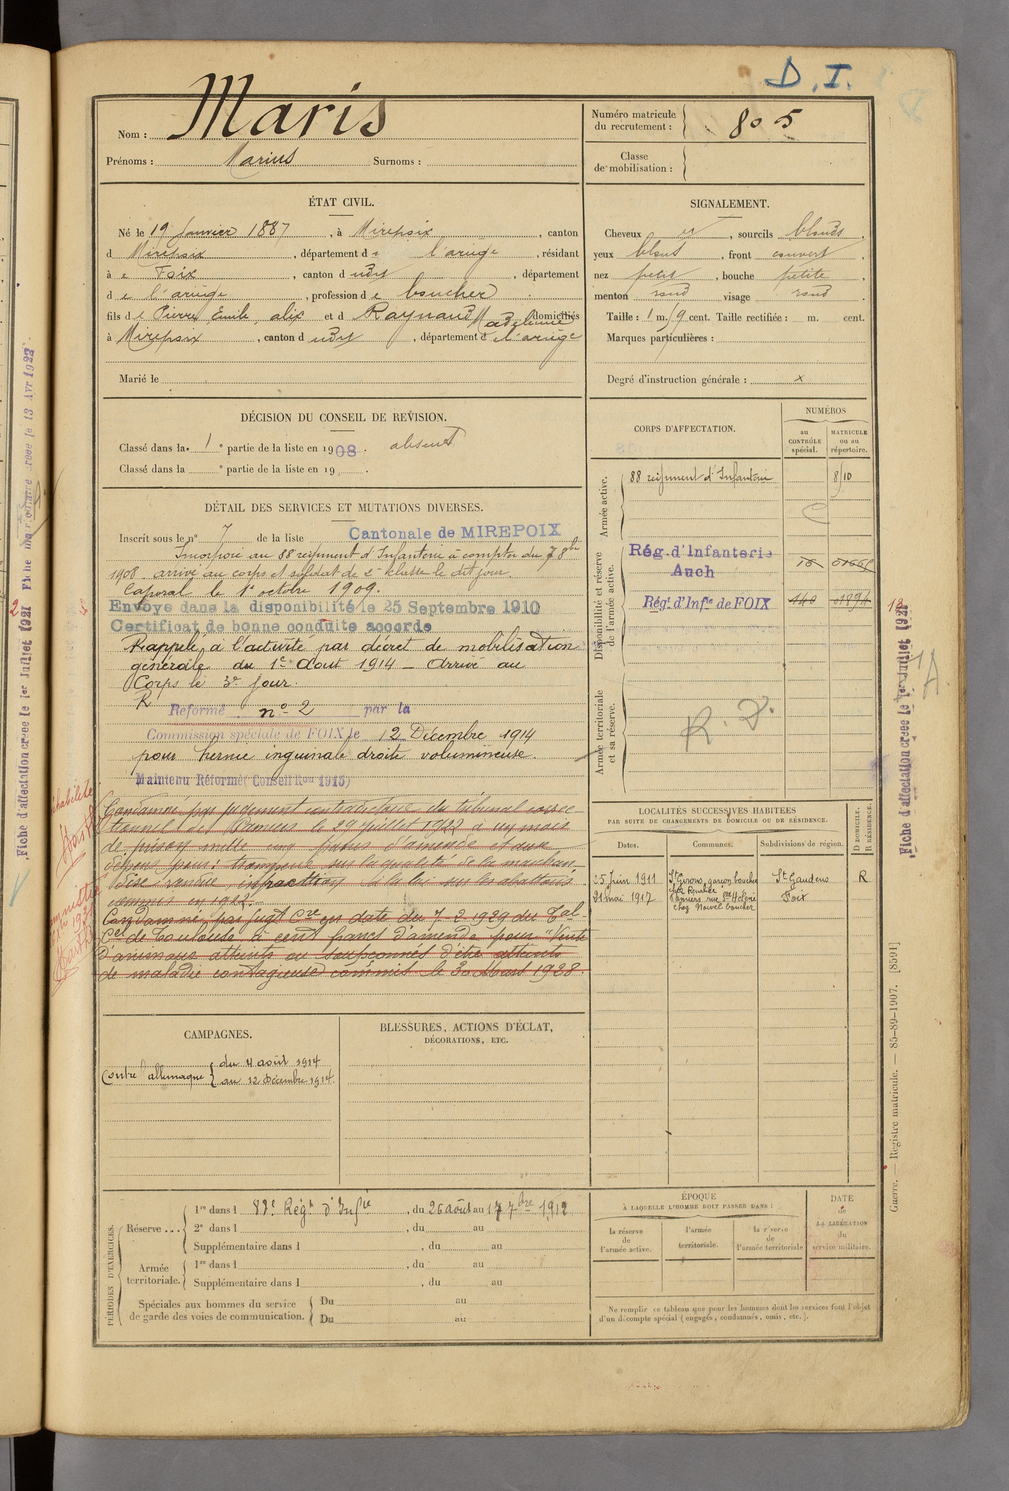 D.I.
Nom : Maris
Prénoms : Marius Surnoms :
Numéro matricule du recrutement : 805
Classe de mobilisation :
ÉTAT CIVIL.
Né le 19 Janvier 1887, à Mirepoix, canton
d Mirepoix, département de l'ariège, résidant
à Foix, canton d udit, département
de l'ariège, profession de boucher
fils de Pierre Emile alix et d Raynaud Madeleine domiciliés
à Mirepoix, canton d udit, département d l'ariège
Marié le
SIGNALEMENT.
Cheveux et, sourcils blonds
yeux bleus, front couvert
nez petit, bouche petite
menton rond visage rond
Taille : 1 m. cent. Taille rectifiée : m. cent.
Marques particulières :
Degré d'instruction générale : x
DÉCISION DU CONSEIL DE REVISION.
Classé dans la 1e partie de la liste en 1908. absent
Classé dans la e partie de la liste en 19 .
DÉTAIL DES SERVICES ET MUTATIONS DIVERSES.
Inscrit sous le n° 7 de la liste Cantonale de MIREPOIX
Incorporé au 88 régiment d'Infanterie à compter du 7 8bre
1908. arrivé au corps et soldat de 2e classe le dit jour.
Caporal le 1er octobre 1909.
Envoyé dans la disponibilité le 25 Septembre 1910
Certificat de bonne conduite accordé
Rappelé à l'activité par décret de mobilisation
générale du 1er Aout 1914 – Arrivé au
Corps le 3e jour.
R
Réformé n° 2 par la
Commission spéciale de FOIX le 12 Décembre 1914
pour hernie inguinale droite volumineuse.
Maintenu Réformé (Conseil Ron 1915)
Condamné par jugement contradictoire du tribunal correc
tionnel de Pamiers le 29 juillet 1922 à un mois
de prison mille cinq francs d'amende et aux
dépens pour : tromperie sur la qualité de la marchan-
dise vendue, infraction à la loi sur les abattoirs
commis en 1922.
Condamné par jugt Cre en date du 7-2-1929 du Tal
Cel de Toulouse à cent francs d'amende pour "Vente
d'animaux atteints ou soupçonnés d'être atteints
de maladie contagieuse) commis le 30 Mars 1928.
CORPS D'AFFECTATION.
NUMÉROS
au CONTRÔLE spécial.
MATRICULE ou au répertoire.
Armée active.
88 régiment d'Infanterie 8110
Disponibilité et réserve de l'armée active.
Rég. d'Infanterie
Auch
Rég. d'Infie de FOIX
Armée territoriale et sa réserve.
R. D.
LOCALITÉS SUCCESSIVES HABITÉES
PAR SUITE DE CHANGEMENTS DE DOMICILE OU DE RÉSIDENCE.
Dates.
Communes.
Subdivisions de région.
D DOMICILE.
R RÉSIDENCE.
25 Juin 1911 St Girons, garçon boucher St Gaudens R
21 mai 1917 Pamiers rue Foix
chez boucher
CAMPAGNES.
Contre l'allemagne du 4 août 1914
au 12 Décembre 1914.
BLESSURES, ACTIONS D'ÉCLAT,
DÉCORATIONS, ETC.
PÉRIODES D'EXERCICES.
Réserve ...
1re dans l 88e Régt d'Infie, du 26 août au 17 7bre 1912
2e dans l , du au
Supplémentaire dans l , du au
Armée territoriale.
1re dans l , du au
Supplémentaire dans l , du au
Spéciales aux hommes du service
de garde des voies de communication.
Du au
Du au
ÉPOQUE
À LAQUELLE L'HOMME DOIT PASSER DANS :
la réserve de l'armée active.
l'armée territoriale.
la réserve de l'armée territoriale
DATE de LA LIBÉRATION du service militaire.
Ne remplir ce tableau que pour les hommes dont les services font l'objet
d'un décompte spécial (engagés, condamnés, omis, etc.).
Guerre. — Registre matricule. — 85-89-1907. [8591]
Fiche d'affectation créée le 1er Juillet 1921
Fiche d'affectation créée le 1er Juillet 1921